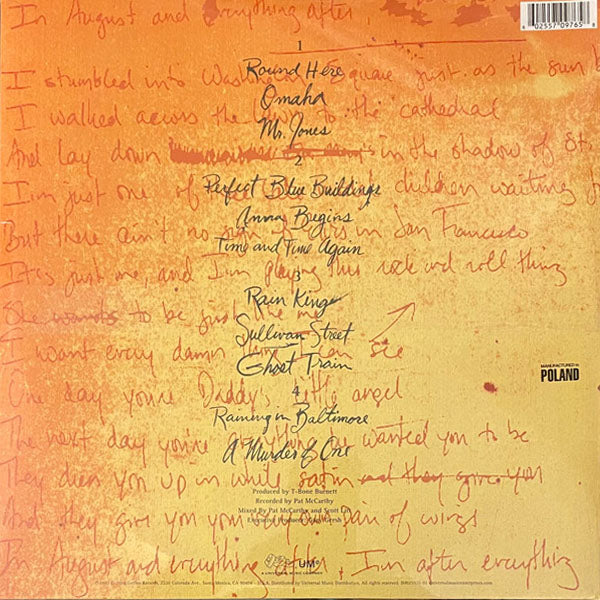 In August and everything after,
8 02557 09765 8
1
I stumbled into Square just as the sun
Round Here
Omaha
I walked across the to the cathedral
Mr. Jones
And lay down in the shadow of St.
2
I'm just one of children waiting
Perfect Blue Buildings
Anna Begins
But there ain't no in San Francisco
Time and Time Again
It's just me, and I'm playing this rock and roll thing
3
Rain King
She wants to be just like me
Sullivan Street
I want every damn thing I can see
Ghost Train
MANUFACTURED IN
POLAND
One day you're Daddy's little angel
4
Raining in Baltimore
The next day you're wanted you to be
A Murder of One
They dress you up in white satin and they give you
Produced by T-Bone Burnett
Recorded by Pat McCarthy
And they give you your pair of wings
Mixed By Pat McCarthy and Scott Litt
Executive Producer: Gary Gersh
In August and everything after, I'm after everything
UMe
A UNIVERSAL MUSIC COMPANY
Records, 2220 Colorado Ave., Santa Monica, CA 90404 - U.S.A. Distributed by Universal Music Distribution. All rights reserved.